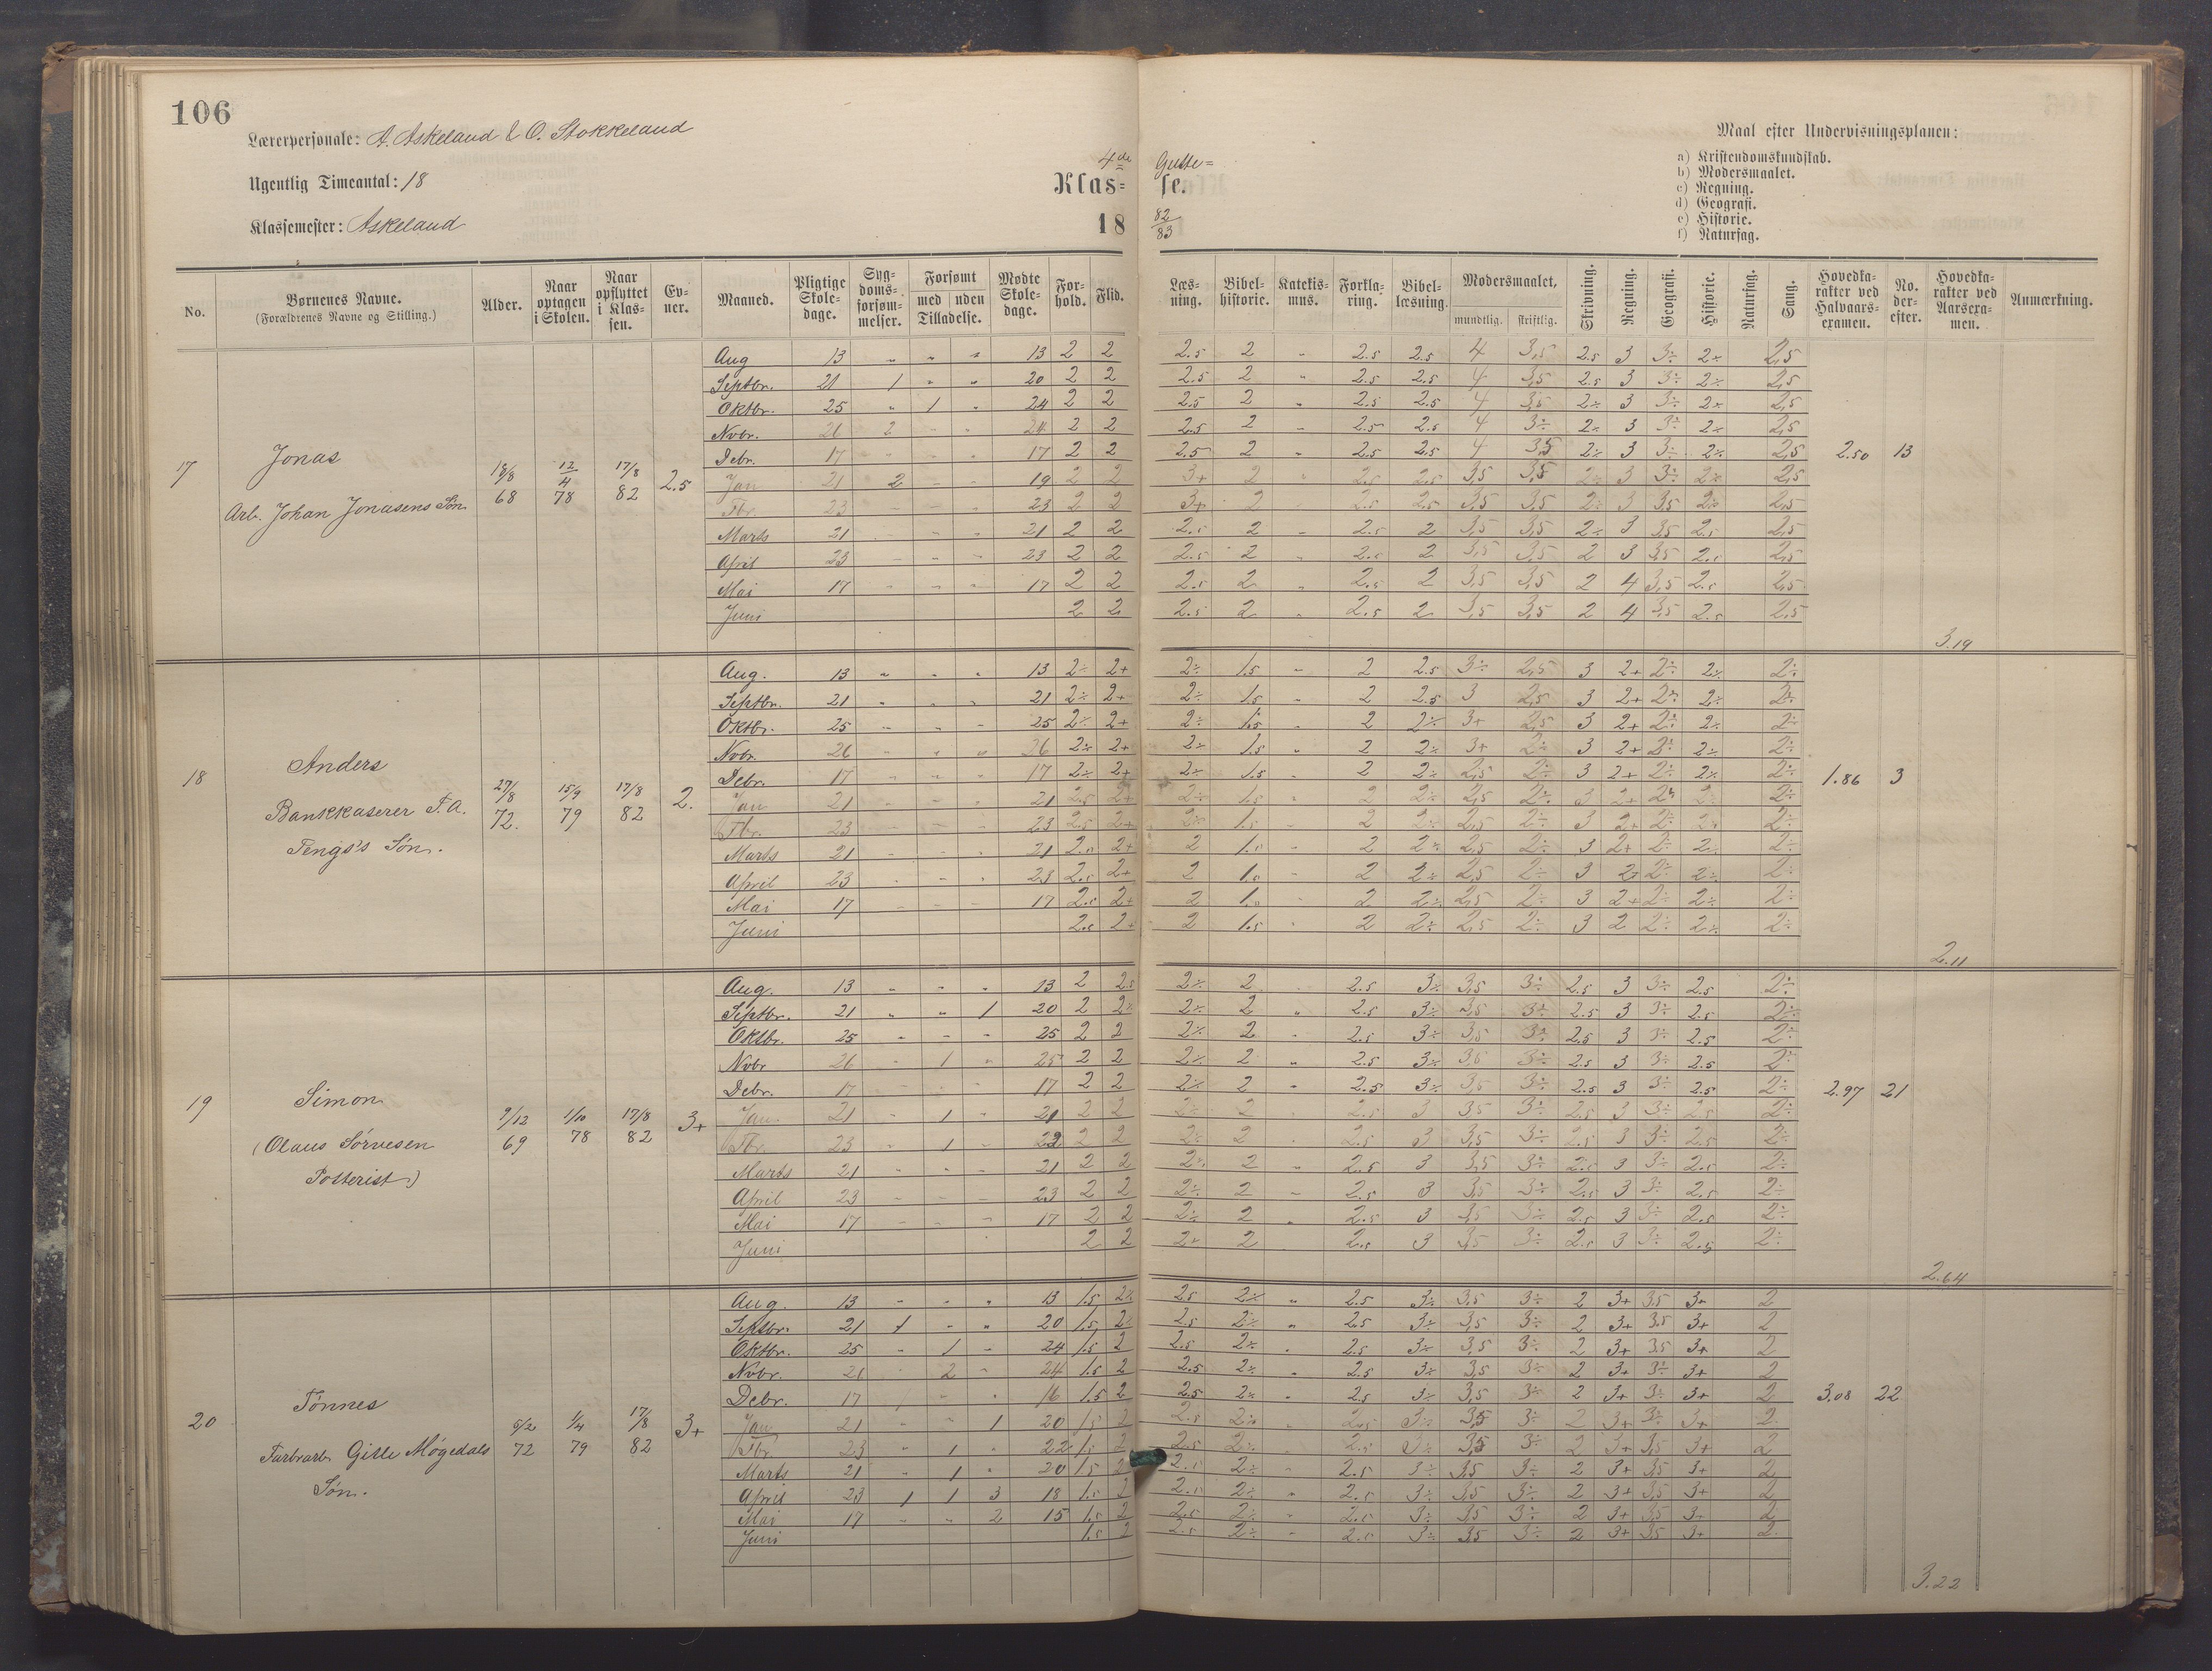 106
Lærerpersonale: A. Askeland & O. Stokkeland
Ugentlig Timeantal: 18
Klassemester: Askeland
4de Gutte=
Klas= se.
18 82/83
Maal efter Undervisningsplanen:
a) Kristendomskundskab.
b) Modersmaalet.
c) Regning.
d) Geografi.
e) Historie.
f) Naturfag.
No. Børnenes Navne. (Forældrenes Navne og Stilling.) Alder. Naar optagen i Skolen. Naar opflyttet i Klassen. Evner. Maaned. Pligtige Skoledage. Sygdomsforsømmelser. Forsømt med uden Tilladelse. Mødte Skoledage. Forhold. Flid. Læsning. Bibelhistorie. Katekismus. Forklaring. Bibellæsning. Modersmaalet, mundtlig. skriftlig. Skrivning. Regning. Geografi. Historie. Naturfag. Sang. Hovedkarakter ved Halvaarsexamen. No. derefter. Hovedkarakter ved Aarsexamen. Anmærkning.
17 Jonas
Arb. Johan Jonasens Søn
18/8 68 12/4 78 17/8 82 2.5
Aug 13 " " " 13 2 2 2.5 2 " 2.5 2.5 4 3,5 2.5 3 3÷ 2÷ 2,5
Septbr. 21 1 " " 20 2 2 2.5 2 " 2.5 2.5 4 3,5 2.5 3 3÷ 2÷ 2,5
Oktbr. 25 " 1 " 24 2 2 2.5 2 " 2.5 2.5 4 3,5 2÷ 3 3÷ 2÷ 2,5
Novbr. 26 2 " " 24 2 2 2.5 2 " 2.5 2.5 4 3÷ 2÷ 3 3÷ 2÷ 2,5
Debr. 17 " " " 17 2 2 2.5 2 " 2.5 2.5 4 3,5 2÷ 3 3÷ 2÷ 2,5 2.50 13
Jan 21 2 " " 19 2 2 3+ 2 " 2.5 2.5 3,5 3,5 2÷ 3 3÷ 2÷ 2,5
Fbr. 23 " " " 23 2 2 3+ 2 " 2.5 2.5 3,5 3,5 2÷ 3 3,5 2÷ 2,5
Marts 21 " " " 21 2 2 2.5 2 " 2.5 2 3,5 3,5 2÷ 3 3,5 2.5 2,5
April 23 " " " 23 2 2 2.5 2 " 2.5 2 3,5 3,5 2 3 3,5 2.5 2,5
Mai 17 " " " 17 2 2 2.5 2 " 2.5 2 3,5 3,5 2 4 3,5 2.5 2,5
Juni 2 2 2.5 2 " 2.5 2 3,5 3,5 2 4 3,5 2.5 2,5
3.19
18 Anders
Bankkaserer T. A.
Tengs's Søn.
27/8 72. 15/9 79 17/8 82 2.
Aug. 13 " " " 13 2÷ 2+ 2÷ 1.5 " 2 2.5 3÷ 2,5 3 2+ 2÷ 2÷ 2÷
Septbr. 21 " " " 21 2÷ 2+ 2÷ 1.5 " 2 2.5 3 2,5 3 2+ 2÷ 2÷ 2÷
Oktbr. 25 " " " 25 2÷ 2+ 2÷ 1.5 " 2 2÷ 3+ 2,5 3 2+ 2÷ 2÷ 2÷
Novbr. 26 " " " 26 2÷ 2+ 2÷ 1.5 " 2 2÷ 3+ 2÷ 3 2+ 2÷ 2÷ 2÷
Debr. 17 " " " 17 2÷ 2+ 2÷ 1.5 " 2 2÷ 2,5 2÷ 3 2+ 2÷ 2÷ 2÷ 1.86 3
Jan 21 " " " 21 2.5 2+ 2÷ 1.5 " 2 2÷ 2,5 2÷ 3 2+ 2÷ 2÷ 2÷
Fbr. 23 " " " 23 2.5 2+ 2÷ 1.5 " 2 2÷ 2,5 2÷ 3 2+ 2÷ 2÷ 2÷
Marts 21 " " " 21 2.5 2+ 2 1.5 " 2 2÷ 2,5 2÷ 3 2+ 2÷ 2÷ 2÷
April 23 " " " 23 2.5 2+ 2 1.5 " 2 2÷ 2,5 2÷ 3 2+ 2÷ 2÷ 2÷
Mai 17 " " " 17 2.5 2+ 2 1.5 " 2 2÷ 2,5 2÷ 3 2+ 2÷ 2÷ 2÷
Juni 2.5 2+ 2 1.5 " 2 2÷ 2,5 2÷ 3 2 2÷ 2÷ 2÷
2.11
19 Simon
(Olaus Sørvesen
Potterist)
9/12 69 1/10 78 17/8 82 3+
Aug. 13 " " " 13 2 2.5 2÷ 2 " 2.5 3÷ 3,5 3÷ 2.5 3 3÷ 2.5 2÷
Septbr. 21 " " 1 20 2 2÷ 2÷ 2 " 2.5 3÷ 3,5 3÷ 2.5 3 3÷ 2.5 2÷
Oktbr. 25 " " " 25 2 2 2÷ 2 " 2.5 3÷ 3,5 3÷ 2.5 3 3÷ 2.5 2÷
Novbr 26 " 1 " 25 2 2 2÷ 2 " 2.5 3÷ 3,5 3÷ 2.5 3 3÷ 2.5 2÷
Debr. 17 " " " 17 2 2 2÷ 2 " 2.5 3÷ 3,5 3÷ 2.5 3 3÷ 2.5 2÷ 2.97 21
Jan 21 " 1 " 21 2 2 2÷ 2 " 2.5 3 3,5 3÷ 2.5 3 3÷ 2.5 2÷
Fbr. 23 " 1 " 22 2 2 2÷ 2 " 2.5 3 3,5 3÷ 2.5 3 3÷ 2.5 2÷
Marts 21 " " " 21 2 2 2÷ 2 " 2.5 3 3,5 3÷ 2.5 3 3÷ 2.5 2÷
April 23 " " " 23 2 2 2÷ 2 " 2.5 3 3,5 3÷ 2.5 3 3÷ 2.5 2÷
Mai 17 " " " 17 2 2 2÷ 2 " 2.5 3 3,5 3÷ 2.5 3 3÷ 2.5 2÷
Juni 2 2 2÷ 2 2.5 3 3,5 3÷ 2.5 3 3÷ 2.5 2÷
2.64
20 Tønnes
Farbrarb. Gitle Møgedals
Søn.
6/2 72 1/4 79 17/8 82 3+
Aug. 13 " " " 13 1.5 2÷ 2.5 2÷ " 2.5 3÷ 3,5 3÷ 2 3+ 3,5 3+ 2
Septbr. 21 1 " " 20 1.5 2÷ 2.5 2÷ " 2.5 3÷ 3,5 3÷ 2 3+ 3,5 3+ 2
Oktbr. 25 " 1 " 24 1.5 2 2.5 2÷ " 2.5 3÷ 3,5 3÷ 2 3+ 3,5 3+ 2
Novbr. 26 " 2 " 24 1.5 2 2.5 2÷ " 2.5 3÷ 3,5 3÷ 2 3+ 3÷ 3+ 2
Debr. 17 1 " " 16 1.5 2 2.5 2÷ " 2.5 3÷ 3,5 3÷ 2 3+ 3÷ 3+ 2 3.08 22
Jan 21 " " 1 20 1.5 2 2.5 2÷ " 2.5 3÷ 3,5 3÷ 2 3+ 3÷ 3+ 2
Fbr 23 " 1 " 22 1.5 2 2.5 2÷ " 2.5 3÷ 3,5 3÷ 2 3+ 3,5 3+ 2
Marts 21 " 1 " 20 1.5 2 2.5 2÷ " 2.5 3÷ 3,5 3÷ 2 3+ 3,5 3+ 2
April 23 1 1 3 18 1.5 2 2.5 2÷ " 2.5 3÷ 3,5 3÷ 2 3+ 3,5 3+ 2
Mai 17 " " 2 15 1.5 2 2.5 2÷ " 2.5 3÷ 3,5 3÷ 2 3+ 3,5 3+ 2
Juni 1.5 2 2.5 2÷ " 2.5 3÷ 3,5 3÷ 2 3+ 3,5 3+ 2
3.22